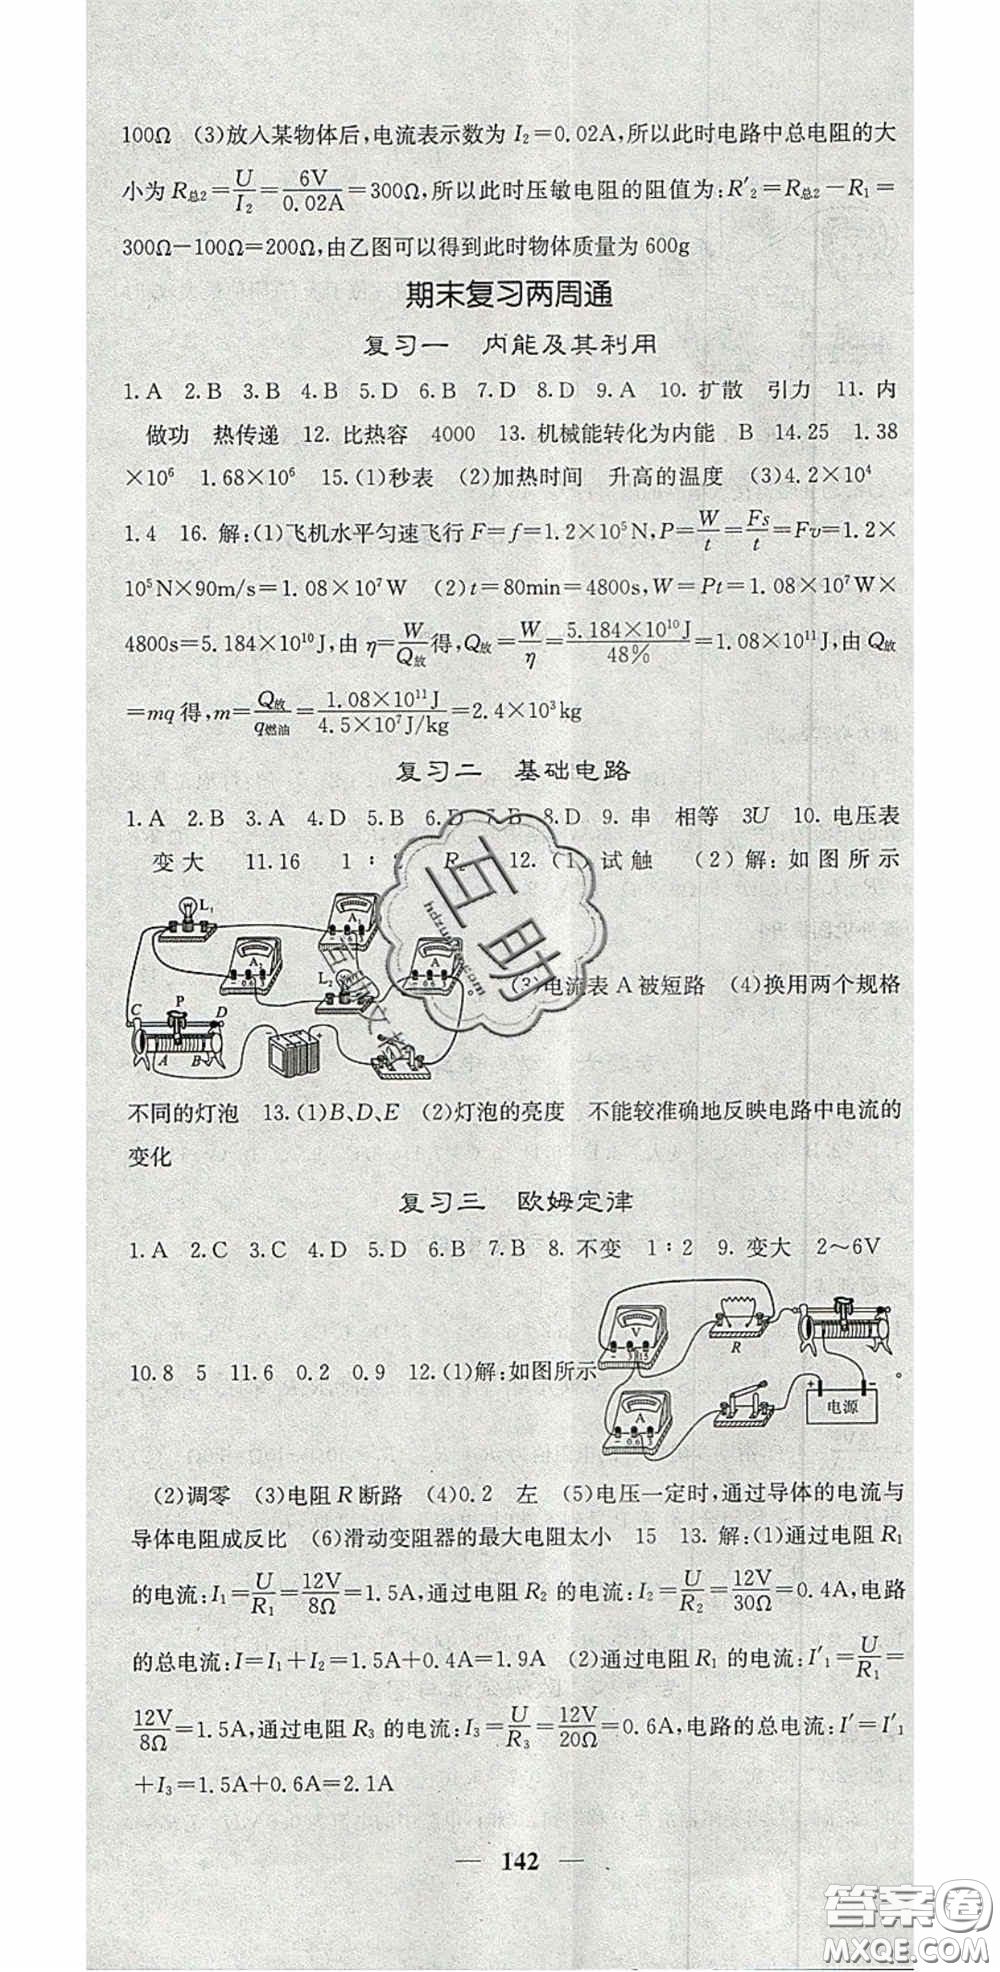 100Ω (3)放入某物体后,电流表示数为 I₂=0.02A,所以此时电路中总电阻的大
小为 R总₂=U/I₂=6V/0.02A=300Ω,所以此时压敏电阻的阻值为:R′₂=R总₂−R₁=
300Ω−100Ω=200Ω,由乙图可以得到此时物体质量为 600g
期末复习两周通
复习一 内能及其利用
1.A 2.B 3.B 4.B 5.D 6.B 7.D 8.D 9.A 10.扩散 引力 11.内
做功 热传递 12.比热容 4000 13.机械能转化为内能 B 14.25 1.38
×10⁶ 1.68×10⁶ 15.(1)秒表 (2)加热时间 升高的温度 (3)4.2×10⁴
1.4 16.解:(1)飞机水平匀速飞行 F=f=1.2×10⁵N,P=W/t=Fs/t=Fv=1.2×
10⁵N×90m/s=1.08×10⁷W (2)t=80min=4800s,W=Pt=1.08×10⁷W×
4800s=5.184×10¹⁰J,由 η=W/Q放得,Q放=W/η=5.184×10¹⁰J/48%=1.08×10¹¹J,由 Q放
=mq 得,m=Q放/q燃油=1.08×10¹¹J/4.5×10⁷J/kg=2.4×10³kg
复习二 基础电路
1.A 2.B 3.A 4.D 5.B 6.D 7.B 8.D 9.串 相等 3U 10.电压表
变大 11.16 1∶2 12.(1)试触 (2)解:如图所示
L₁
A₁
A₂
L₂
A
C P D
A B
− +
(3)电流表 A 被短路 (4)换用两个规格
不同的灯泡 13.(1)B、D、E (2)灯泡的亮度 不能较准确地反映电路中电流的
变化
复习三 欧姆定律
1.A 2.C 3.C 4.D 5.D 6.B 7.B 8.不变 1∶2 9.变大 2～6V
10.8 5 11.6 0.2 0.9 12.(1)解:如图所示
V
R
A
− 0.6 3
+ −
电源
。
(2)调零 (3)电阻 R 断路 (4)0.2 左 (5)电压一定时,通过导体的电流与
导体电阻成反比 (6)滑动变阻器的最大电阻太小 15 13.解:(1)通过电阻 R₁
的电流:I₁=U/R₁=12V/8Ω=1.5A,通过电阻 R₂ 的电流:I₂=U/R₂=12V/30Ω=0.4A,电路
的总电流:I=I₁+I₂=1.5A+0.4A=1.9A (2)通过电阻 R₁ 的电流:I′₁=U/R₁=
12V/8Ω=1.5A,通过电阻 R₃ 的电流:I₃=U/R₃=12V/20Ω=0.6A,电路的总电流:I′=I′₁
+I₃=1.5A+0.6A=2.1A
— 142 —
互助
答案圈
MXQE.COM